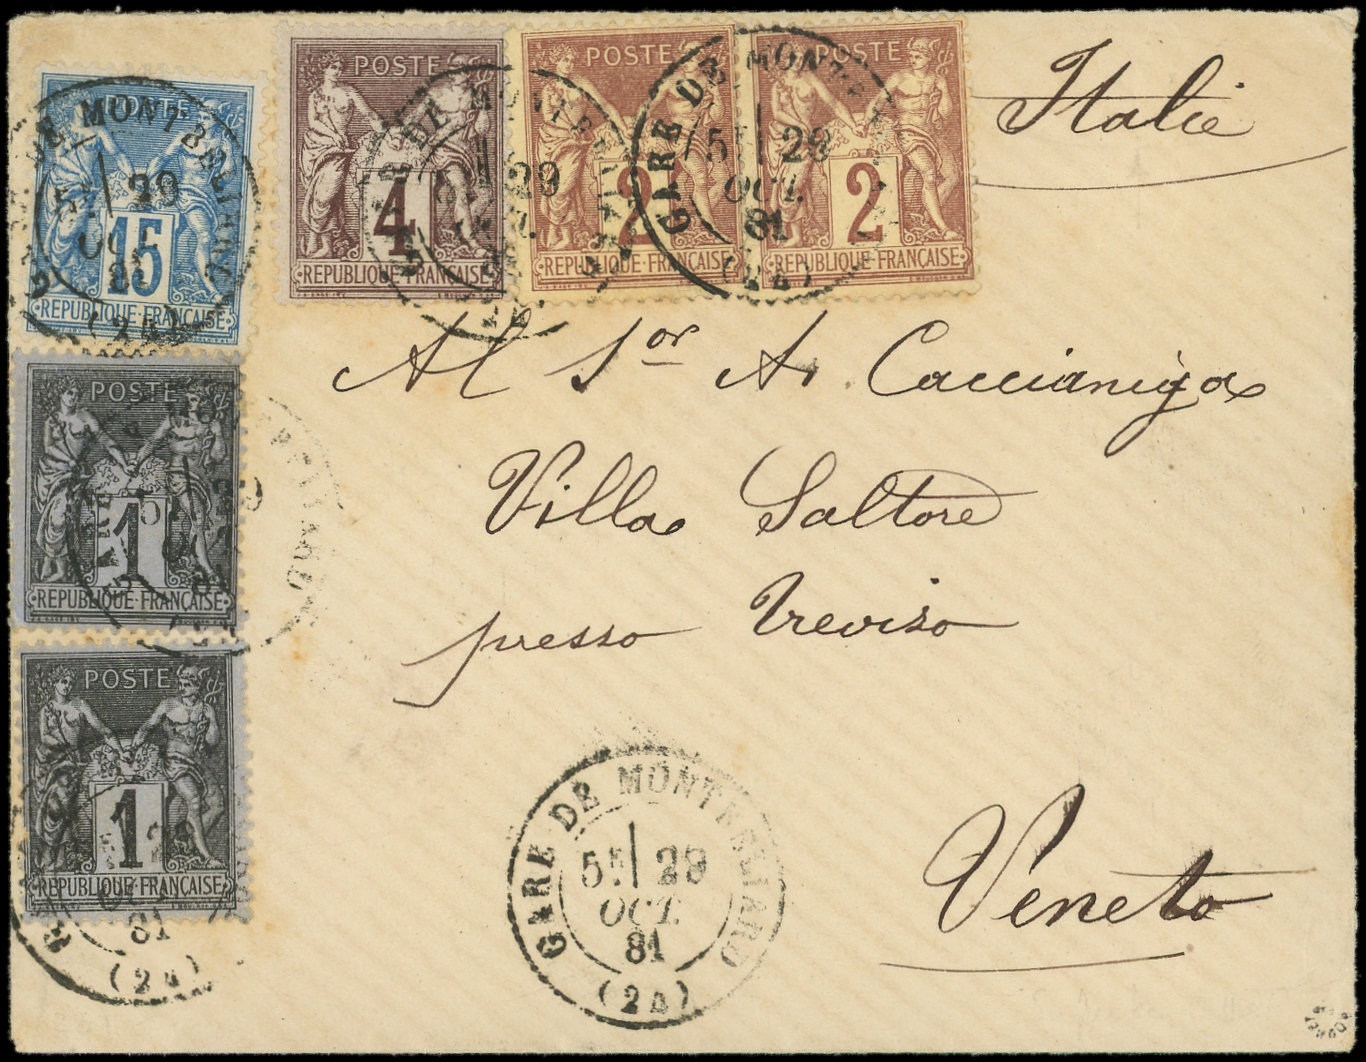 POSTE
4
REPUBLIQUE FRANÇAISE
POSTE
2
REPUBLIQUE FRANÇAISE
POSTE
2
REPUBLIQUE FRANÇAISE
Italie
POSTE
15
REPUBLIQUE FRANÇAISE
GARE DE MONTBELIARD
5E 29
OCT.
81
(24)
Al Sor A. Caccianiga
POSTE
1
REPUBLIQUE FRANÇAISE
Villa Saltore
presso Treviso
POSTE
1
REPUBLIQUE FRANÇAISE
81
(24)
GARE DE MONTBELIARD
5E 29
OCT.
81
(24)
Veneto